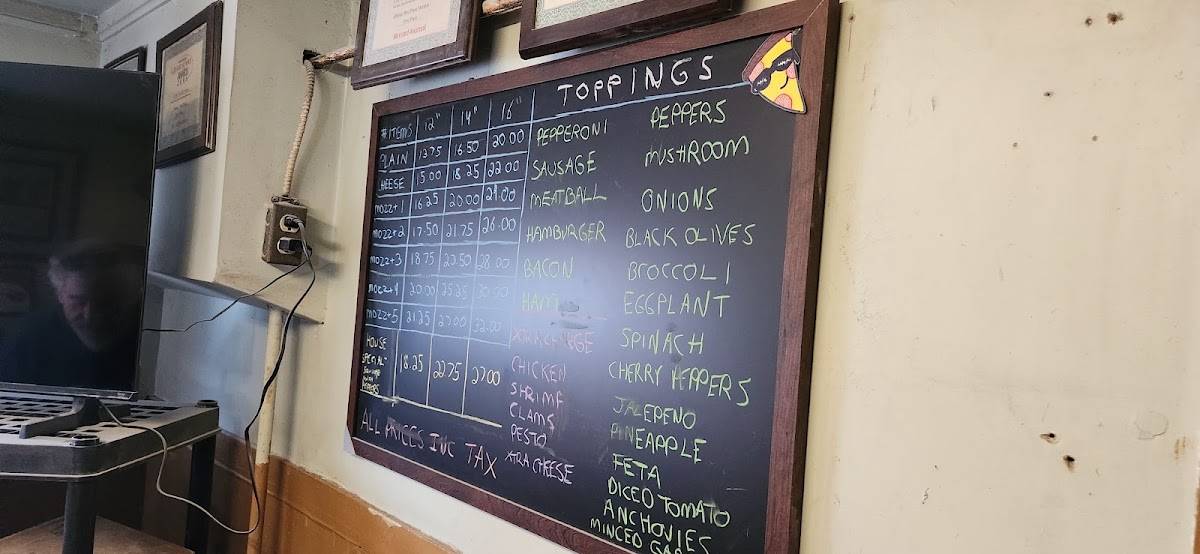 TOPPINGS
# ITEMS 12" 14" 16"
PLAIN 13.75 16.50 20.00
CHEESE 15.00 18.25 22.00
MOZZ+1 16.25 20.00 24.00
MOZZ+2 17.50 21.75 26.00
MOZZ+3 18.75 23.50 28.00
MOZZ+4 20.00 25.25 30.00
MOZZ+5 21.25 27.00 32.00
HOUSE
SPECIAL 18.25 22.75 27.00
PEPPERS
ALL PRICES INC TAX
PEPPERONI
SAUSAGE
MEATBALL
HAMBURGER
BACON
HAM
XTRA CHARGE
CHICKEN
SHRIMP
CLAMS
PESTO
XTRA CHEESE
PEPPERS
MUSHROOM
ONIONS
BLACK OLIVES
BROCCOLI
EGGPLANT
SPINACH
CHERRY PEPPERS
JALEPENO
PINEAPPLE
FETA
DICED TOMATO
ANCHOVIES
MINCED